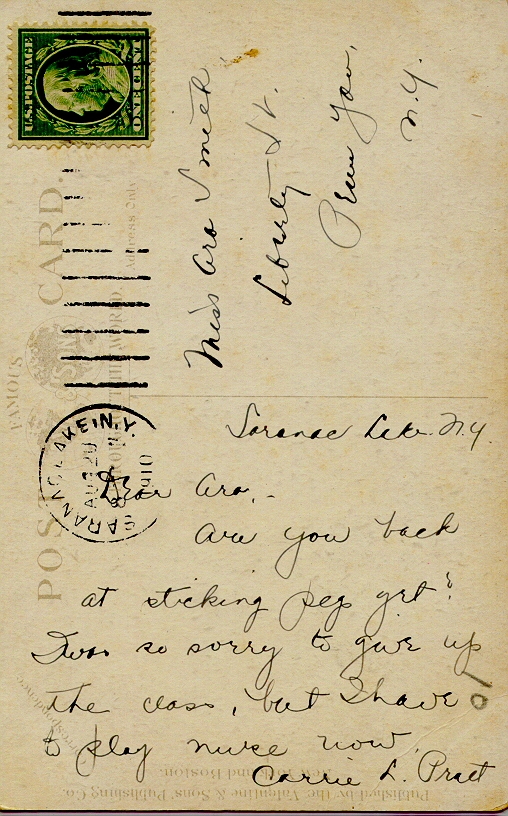 U.S. POSTAGE
ONE CENT
Miss Ara Smith
Liberty St.
Penn Yan,
N.Y.
FAMOUS
POST CARD.
THROUGHOUT THE WORLD.
Address Only
SARANAC LAKE, N.Y.
1910
Saranac Lake N.Y.
Dear Ara,-
Are you back
at sticking pegs yet?
I was so sorry to give up
the class, but I have
to play nurse now.
Carrie L. Pratt
Correspondence
Published by the Valentine & Sons' Publishing Co.
New York and Boston.